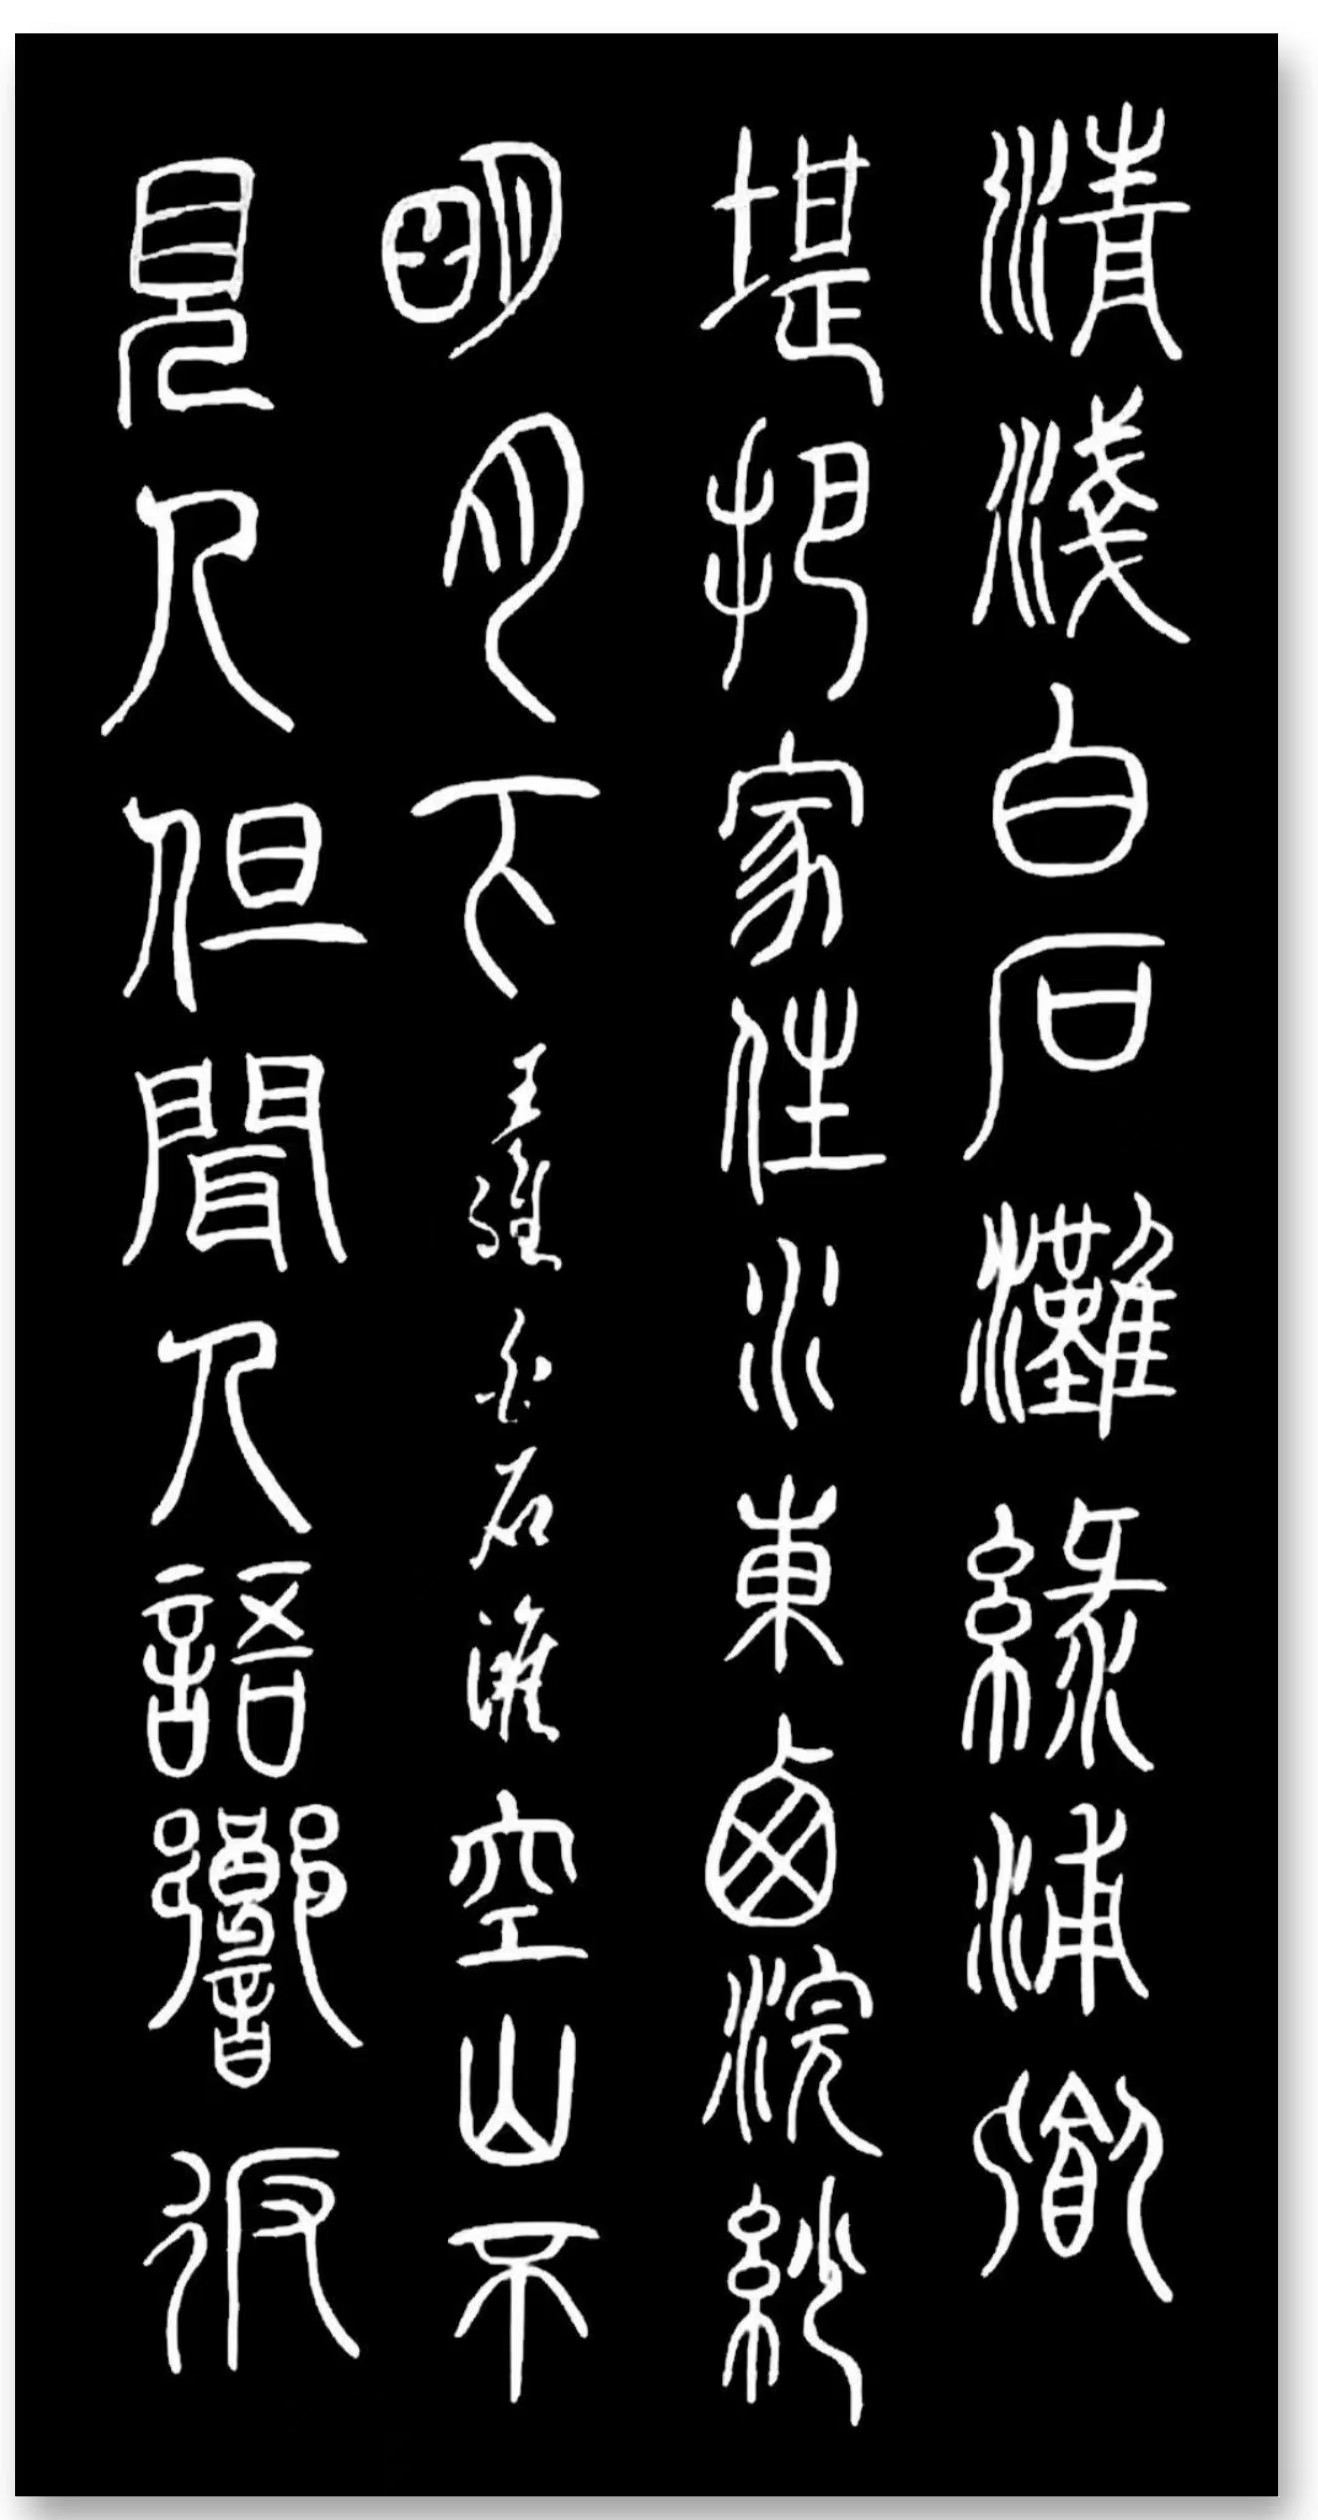 清淺白石灘綠浦鄉
堪把家住水東西浣紗
明月下王維白石灘空山不
見人但聞人語響返